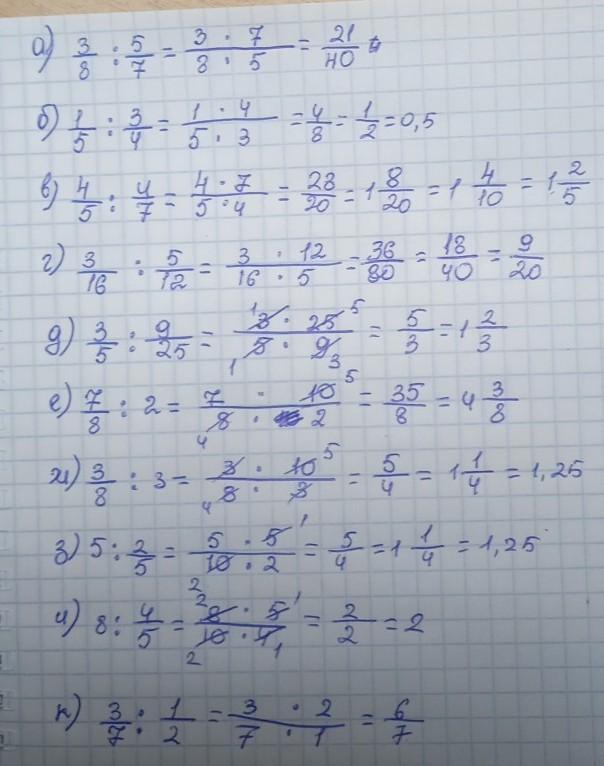 а) 3/8 : 5/7 = 3 · 7 / 8 · 5 = 21/40
б) 1/5 : 3/4 = 1 · 4 / 5 · 3 = 4/8 = 1/2 = 0,5
в) 4/5 : 4/7 = 4 · 7 / 5 · 4 = 28/20 = 1 8/20 = 1 4/10 = 1 2/5
г) 3/16 : 5/12 = 3 · 12 / 16 · 5 = 36/80 = 18/40 = 9/20
д) 3/5 : 9/25 = 1 3 · 25 5 / 1 5 · 9 3 = 5/3 = 1 2/3
е) 7/8 : 2 = 7 · 10 5 / 4 8 · 2 = 35/8 = 4 3/8
ж) 3/8 : 3 = 3 · 10 5 / 4 8 · 3 = 5/4 = 1 1/4 = 1,25
з) 5 : 2/5 = 5 · 5 1 / 10 · 2 = 5/4 = 1 1/4 = 1,25
и) 8 : 4/5 = 2 2 8 · 5 1 / 2 10 · 4 1 = 2/2 = 2
к) 3/7 : 1/2 = 3 · 2 / 7 · 1 = 6/7